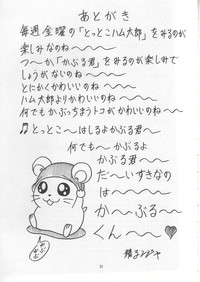 あとがき
毎週金曜の「とっとこハム太郎」をみるのが
楽しみなのね〜〜
つーか「かぶる君」をみるのが楽しみで
しょうがないのね〜〜
とにかくかわいいのね〜〜
ハム太郎よりかわいいのね〜〜
何でもかぶっちまうトコがかわいいのね〜〜
♫とっとこ〜はしるよかぶる君〜〜
何でも〜かぶるよ
かぶる君〜〜
だ〜いすきなの
は〜〜〜
か〜ぶる〜
くん〜〜♥
かぶかぶ